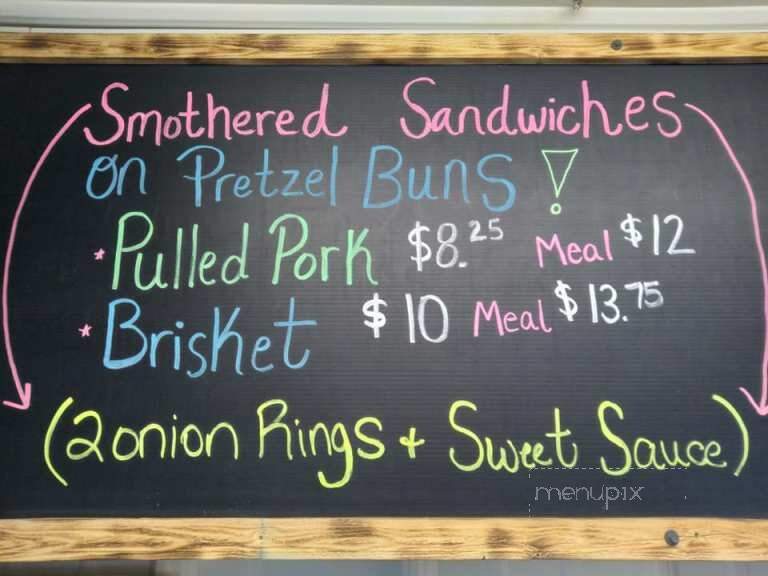 Smothered Sandwiches
on Pretzel Buns!
* Pulled Pork $8.25 Meal $12
* Brisket $10 Meal $13.75
(2 onion Rings + Sweet Sauce)
menupix